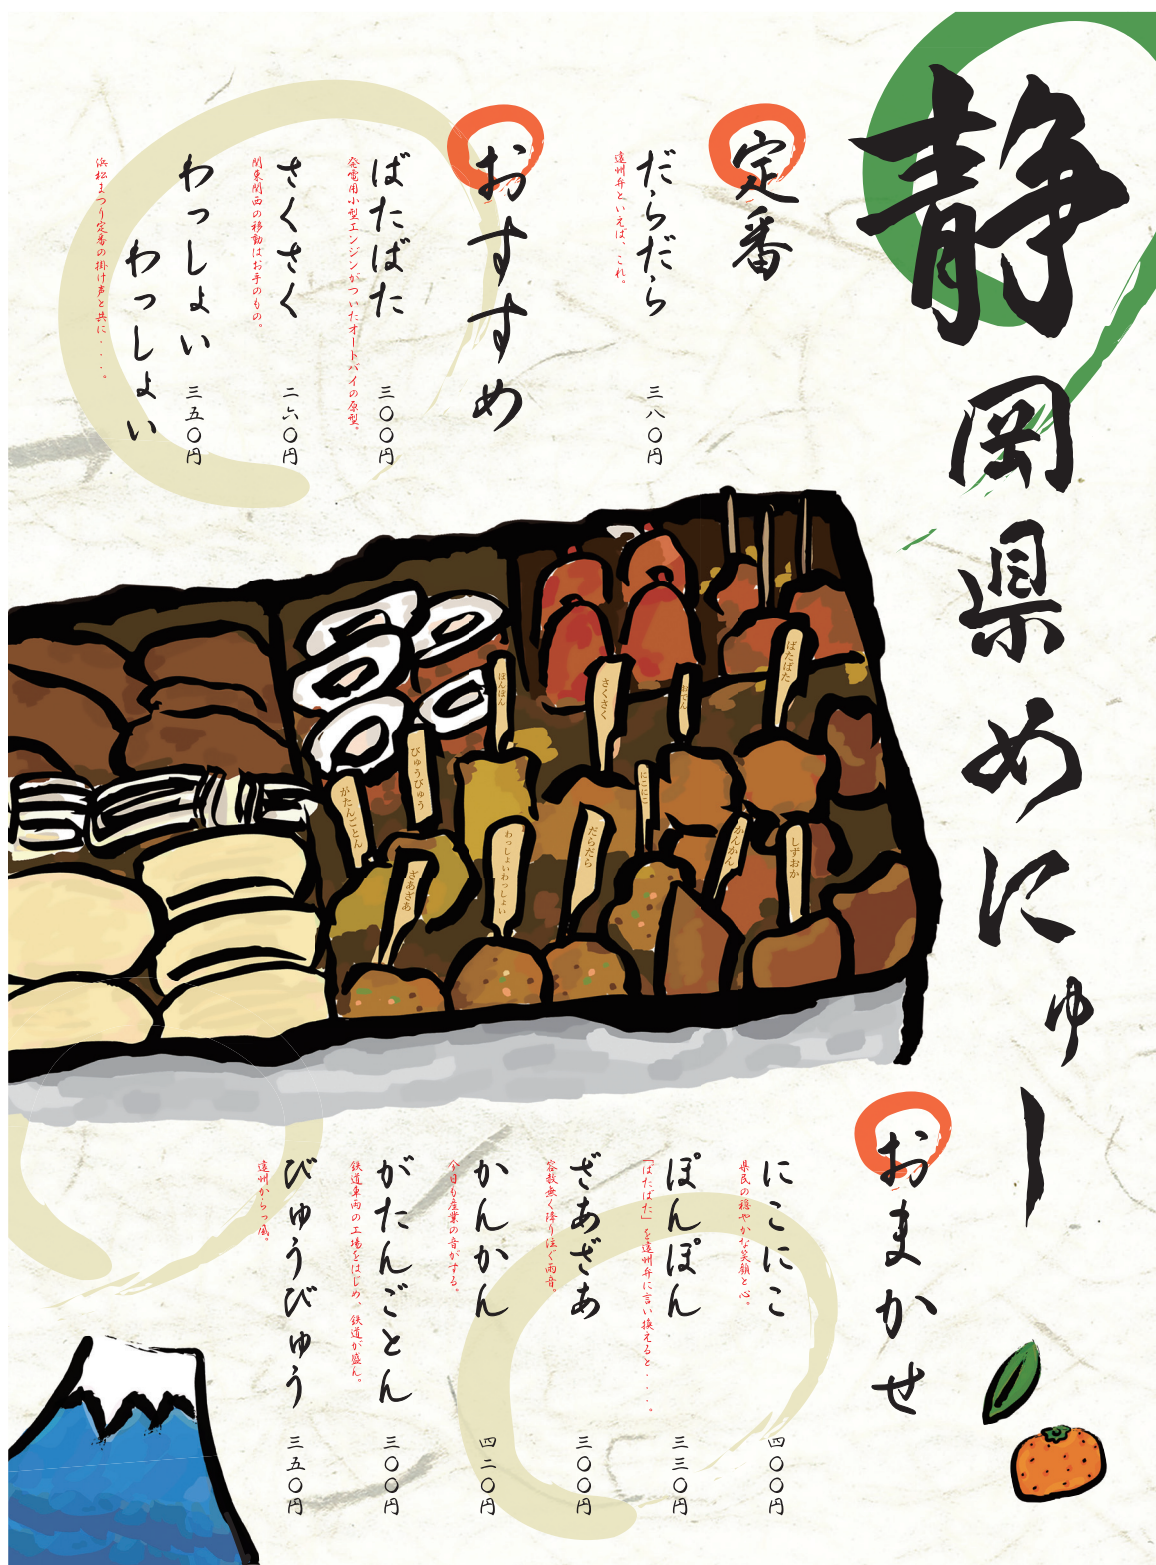 静岡県めにゅー
定番
だらだら 三八〇円
遠州弁といえば、これ。
おすすめ
ばたばた 三〇〇円
発電用小型エンジンがついたオートバイの原型。
さくさく 二六〇円
関東関西の移動はお手のもの。
わっしょい
わっしょい 三五〇円
浜松まつり定番の掛け声と共に・・・。
ばたばた
ぽんぽん
さくさく
おでん
びゅうびゅう
にこにこ
がたんごとん
わっしょいわっしょい
だらだら
かんかん
しずおか
ざあざあ
おまかせ
にこにこ 四〇〇円
県民の穏やかな笑顔と心。
ぽんぽん 三三〇円
「ばたばた」を遠州弁に言い換えると・・・。
ざあざあ 三〇〇円
容赦無く降り注ぐ雨音。
かんかん 四二〇円
今日も産業の音がする。
がたんごとん 三〇〇円
鉄道車両の工場をはじめ、鉄道が盛ん。
びゅうびゅう 三五〇円
遠州からっ風。